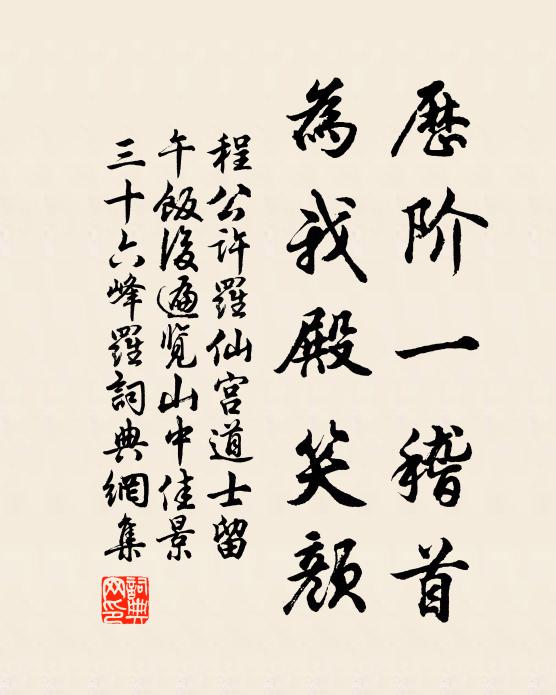 歷阶一稽首
為我殿笑顏
程公许羅仙宫道士留
午飯後遍览山中佳景
三十六峰羅詞典網集
詞典
网印